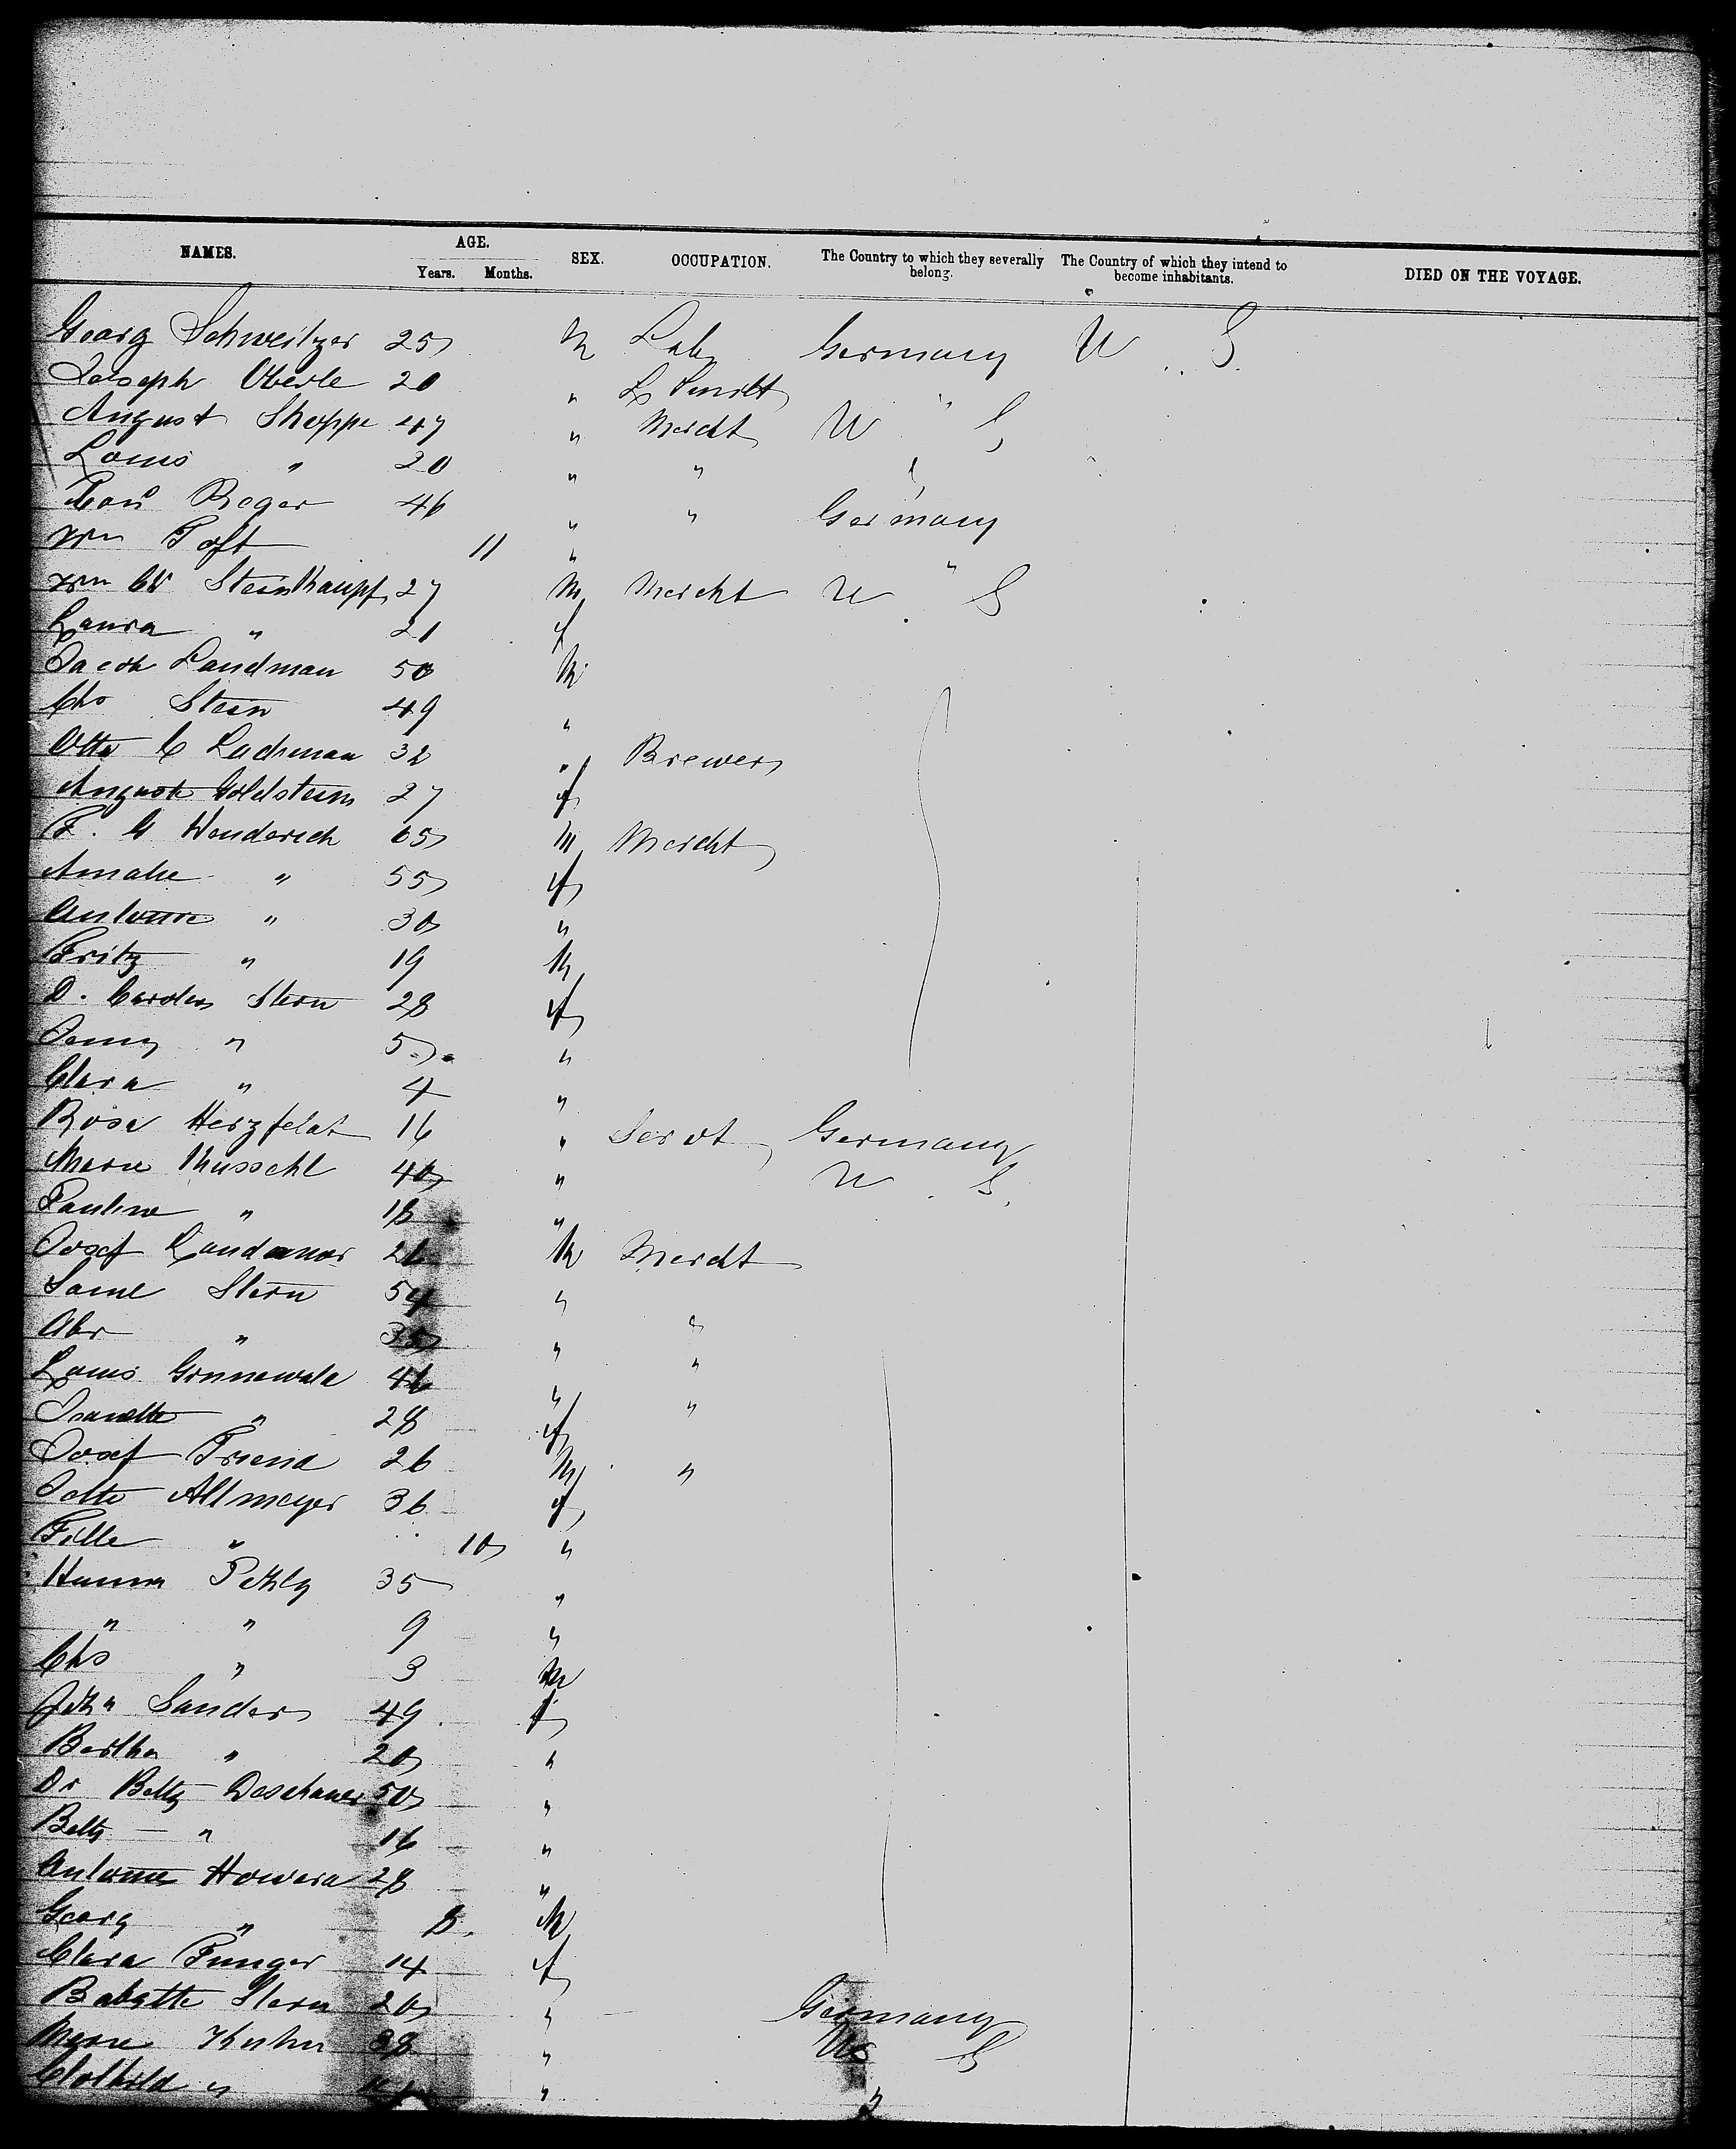 NAMES. AGE. SEX. OCCUPATION. The Country to which they severally belong. The Country of which they intend to become inhabitants. DIED ON THE VOYAGE.
Years. Months.
Georg Schweitzer 25 M Lab Germany U S
Joseph Oberle 20 " L Smilt "
August Shoppe 47 " Mercht U S
Louis " 20 " " "
Roger 46 " " Germany
Wm Toft 11 " "
Wm W Steinkaupf 27 M Mercht U S
Laura " 21 f
Jacob Landman 50 M
Chs Stein 49 "
Otto C Lachman 32 " Brewer
August Goldstein 27 f
F. G Wenderich 65 M Mercht
Amalie " 55 f
Antonie " 30 "
Fritz " 19 M
D. Carolin Stern 28 f
Jenny " 5 "
Clara " 4 "
Rosa Herzfeldt 16 " Servt Germany
Marie Musschl 40 " U S
Pauline " 18 "
Josef Landauer 26 M Mercht
Saml Stern 54 " "
Abr " 35 " "
Louis Grunewald 46 " "
Jeanette " 28 f
Josef Friend 26 M "
Jette Altmeyer 36 f
Tille " 10 "
Hanna Pehly 35 "
" " 9 "
Chs " 3 M
Sander 49 f
Bertha " 20 "
Dr Betty Deschauer 50 "
Betty " 16 "
Antonie Howard 28 "
Georg " 8 M
Clara Funger 14 f
Babette Stern 20 " Germany
Marie Kuhn 38 " U S
Clothild " " "